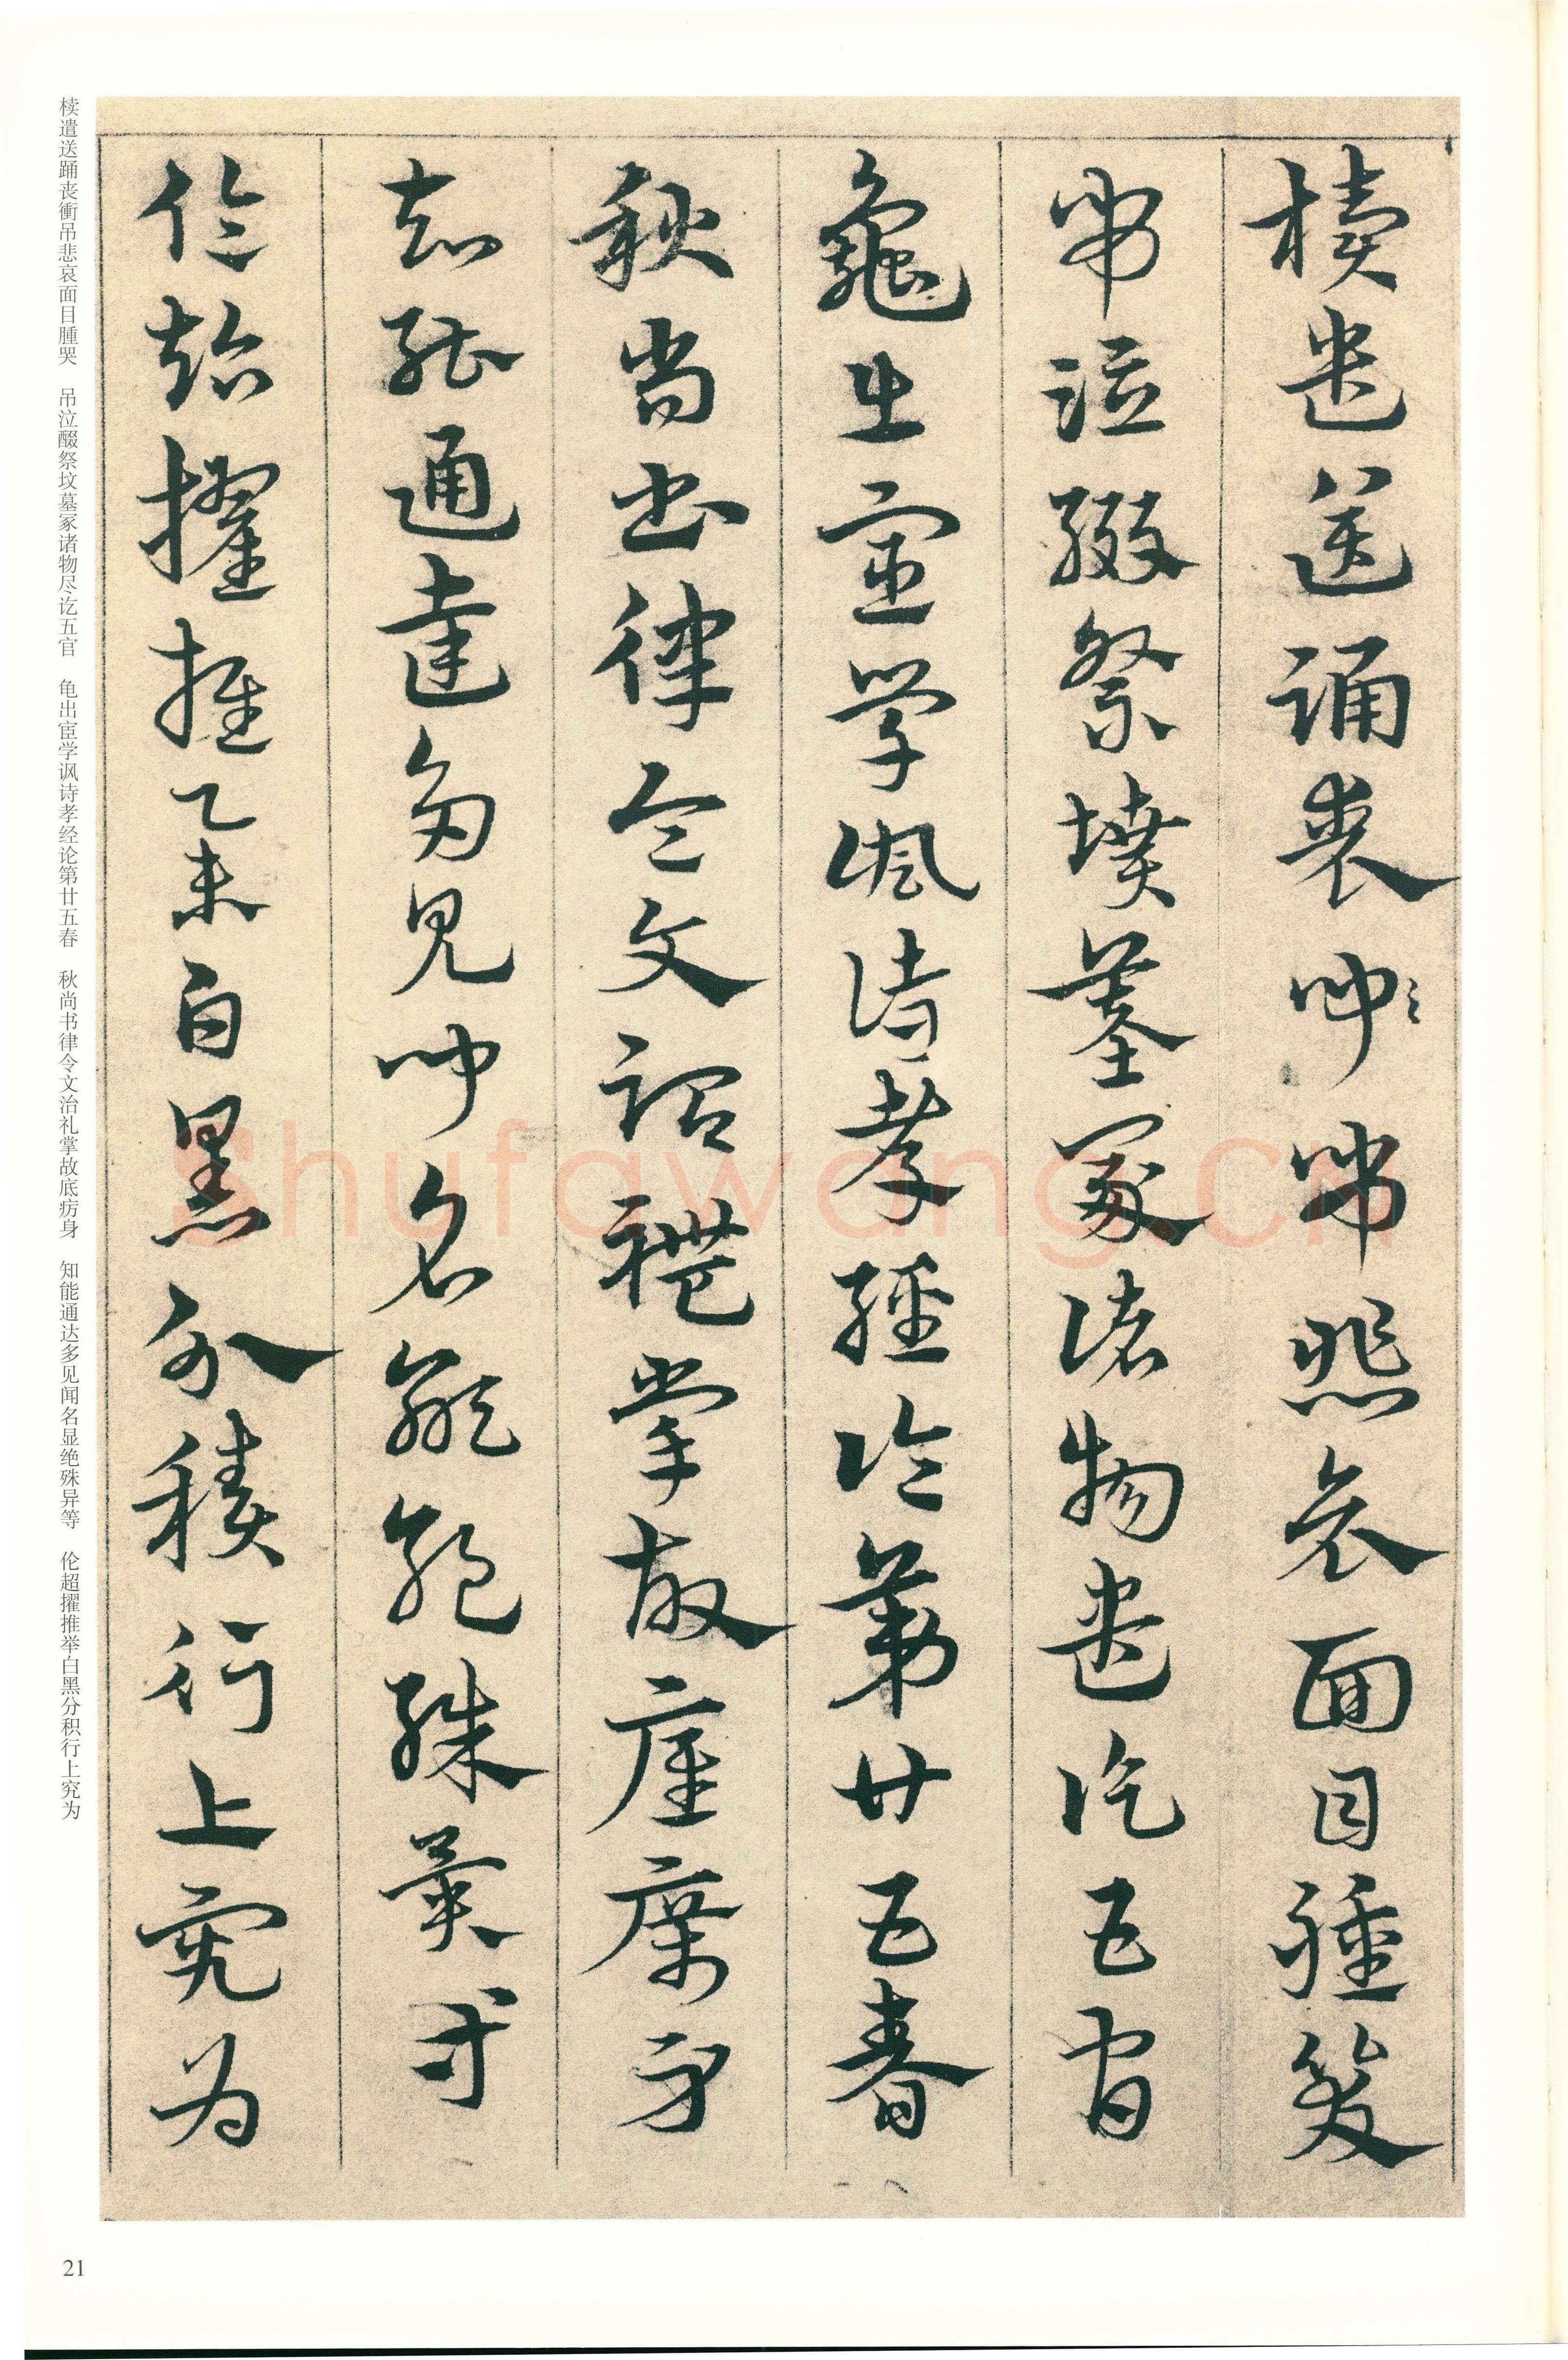 櫝遣送踊喪弔悲哀面目種哭
弔泣綴祭墳墓冢諸物盡訖五官
龜出宦學諷詩孝經論第廿五春
秋尚書律令文治禮掌故底厲身
知能通達多見聞名顯絕殊異等
倫超擢推舉白黑分積行上究為
椟遣送踊丧衝吊悲哀面目腫哭　吊泣醊祭坟墓冢诸物尽讫五官　龟出宦学讽诗孝经论第廿五春　秋尚书律令文治礼掌故底疠身　知能通达多见闻名显绝殊异等　伦超擢推举白黑分积行上究为
21
Shufawang.cn